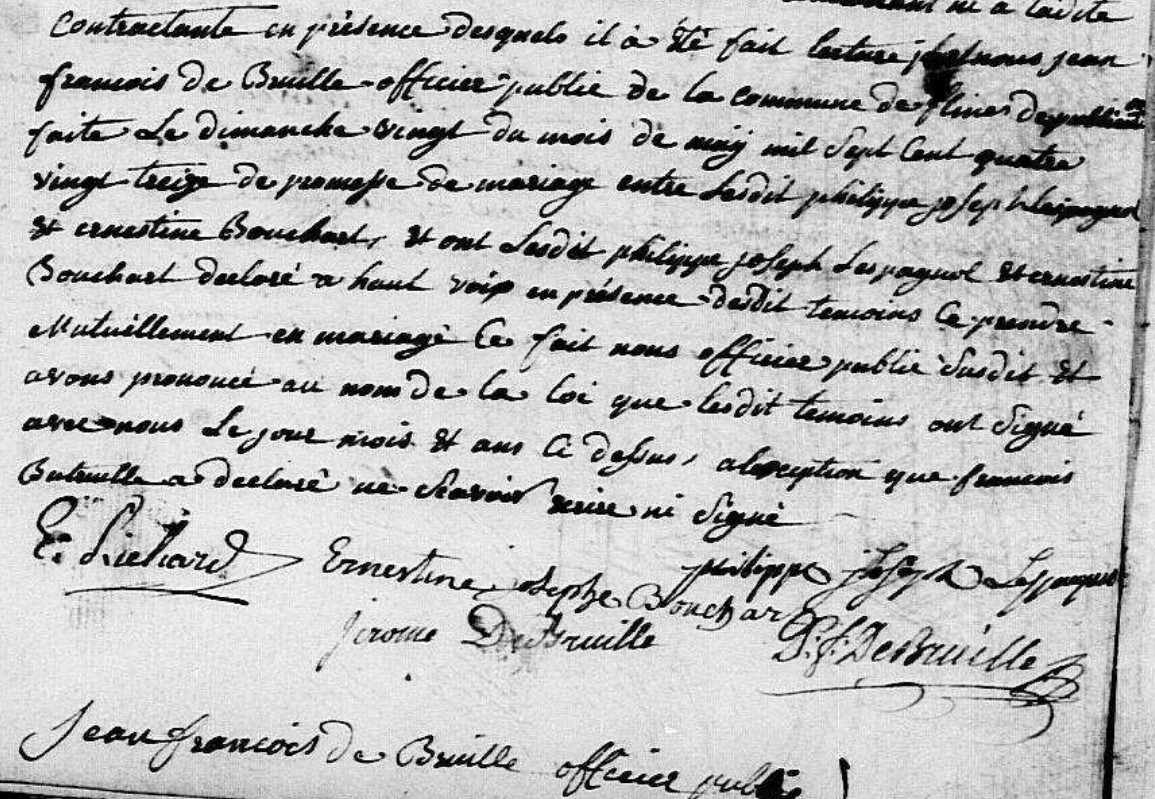 ni a ladite
Contractante en présence desquels il à été fait lecture par nous jean
francois de Bruille officier public de la commune de flines de publication
faite Le dimanche vingt du mois de may mil Sept Cent quatre
vingt treize de promesse de mariage entre Lesdit philippe joseph Lespagnol
et ernestine Bouchart, et ont Lesdit philippe joseph Lespagnol et ernestine
Bouchart declaré a haut voix en présence desdit temoins Ce prendre
Mutuellement en mariage Ce fait nous officier public Susdit et
avons prononcé au nom de la loi que lesdit temoins ont Signé
avec nous Le jour mois et ans Ci dessus, alexception que francois
Butruille a declaré ne Scavoir ecrire ni Signé
philippe joseph Lespagnol
E. Liethard Ernestine josephe Bouchar
jerome DeBruille P. j. DeBruille
Jean francois de Bruille officier public